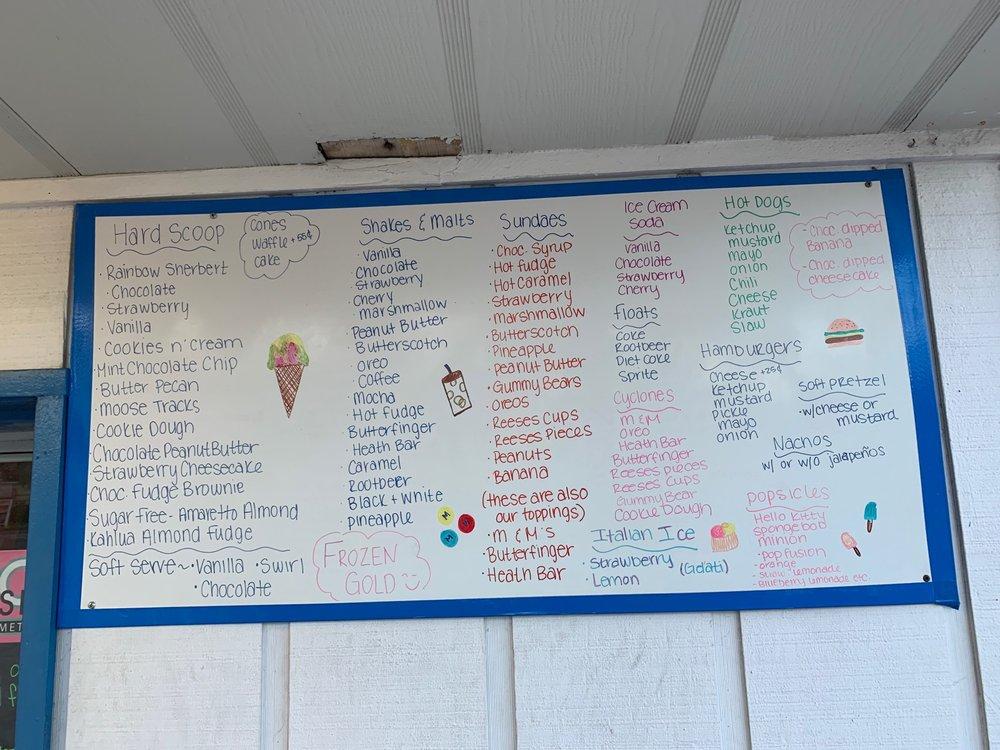 Hard Scoop
Cones
Waffle +55¢
cake
· Rainbow Sherbert
· Chocolate
· Strawberry
· Vanilla
· Cookies n' Cream
· Mint Chocolate Chip
· Butter Pecan
· Moose Tracks
· Cookie Dough
· Chocolate Peanut Butter
· Strawberry Cheesecake
· Choc Fudge Brownie
· Sugar Free - Amaretto Almond
Kahlua Almond Fudge
Soft Serve~ · Vanilla · Swirl
· Chocolate
FROZEN
GOLD
Shakes & Malts
· Vanilla
· Chocolate
· Strawberry
· Cherry
· marshmallow
· Peanut Butter
· Butterscotch
· Oreo
· Coffee
· Mocha
· Hot Fudge
· Butterfinger
· Heath Bar
· Caramel
· Rootbeer
· Black + White
· pineapple
M
M
M
Sundaes
· Choc. Syrup
· Hot fudge
· Hot Caramel
· Strawberry
· marshmallow
· Butterscotch
· Pineapple
· Peanut Butter
· Gummy Bears
· Oreos
· Reeses Cups
· Reeses Pieces
· Peanuts
· Banana
(these are also
our toppings)
· M & M's
· Butterfinger
· Heath Bar
Ice Cream
Soda
Vanilla
Chocolate
Strawberry
Cherry
Floats
Coke
Rootbeer
Diet Coke
Sprite
Cyclones
M & M
Oreo
Heath Bar
Butterfinger
Reeses pieces
Reeses Cups
Gummy Bear
Cookie Dough
Italian Ice
· Strawberry
· Lemon
(Gelati)
Hot Dogs
Ketchup
mustard
mayo
onion
Chili
Cheese
Kraut
Slaw
- Choc dipped
Banana
- Choc. dipped
cheesecake
Hamburgers
Cheese +25¢
Ketchup
mustard
pickle
mayo
onion
Soft Pretzel
· w/cheese or
mustard
Nachos
w/ or w/o jalapeños
popsicles
Hello Kitty
spongebob
minion
· pop fusion
- orange
- Blueberry Lemonade etc.